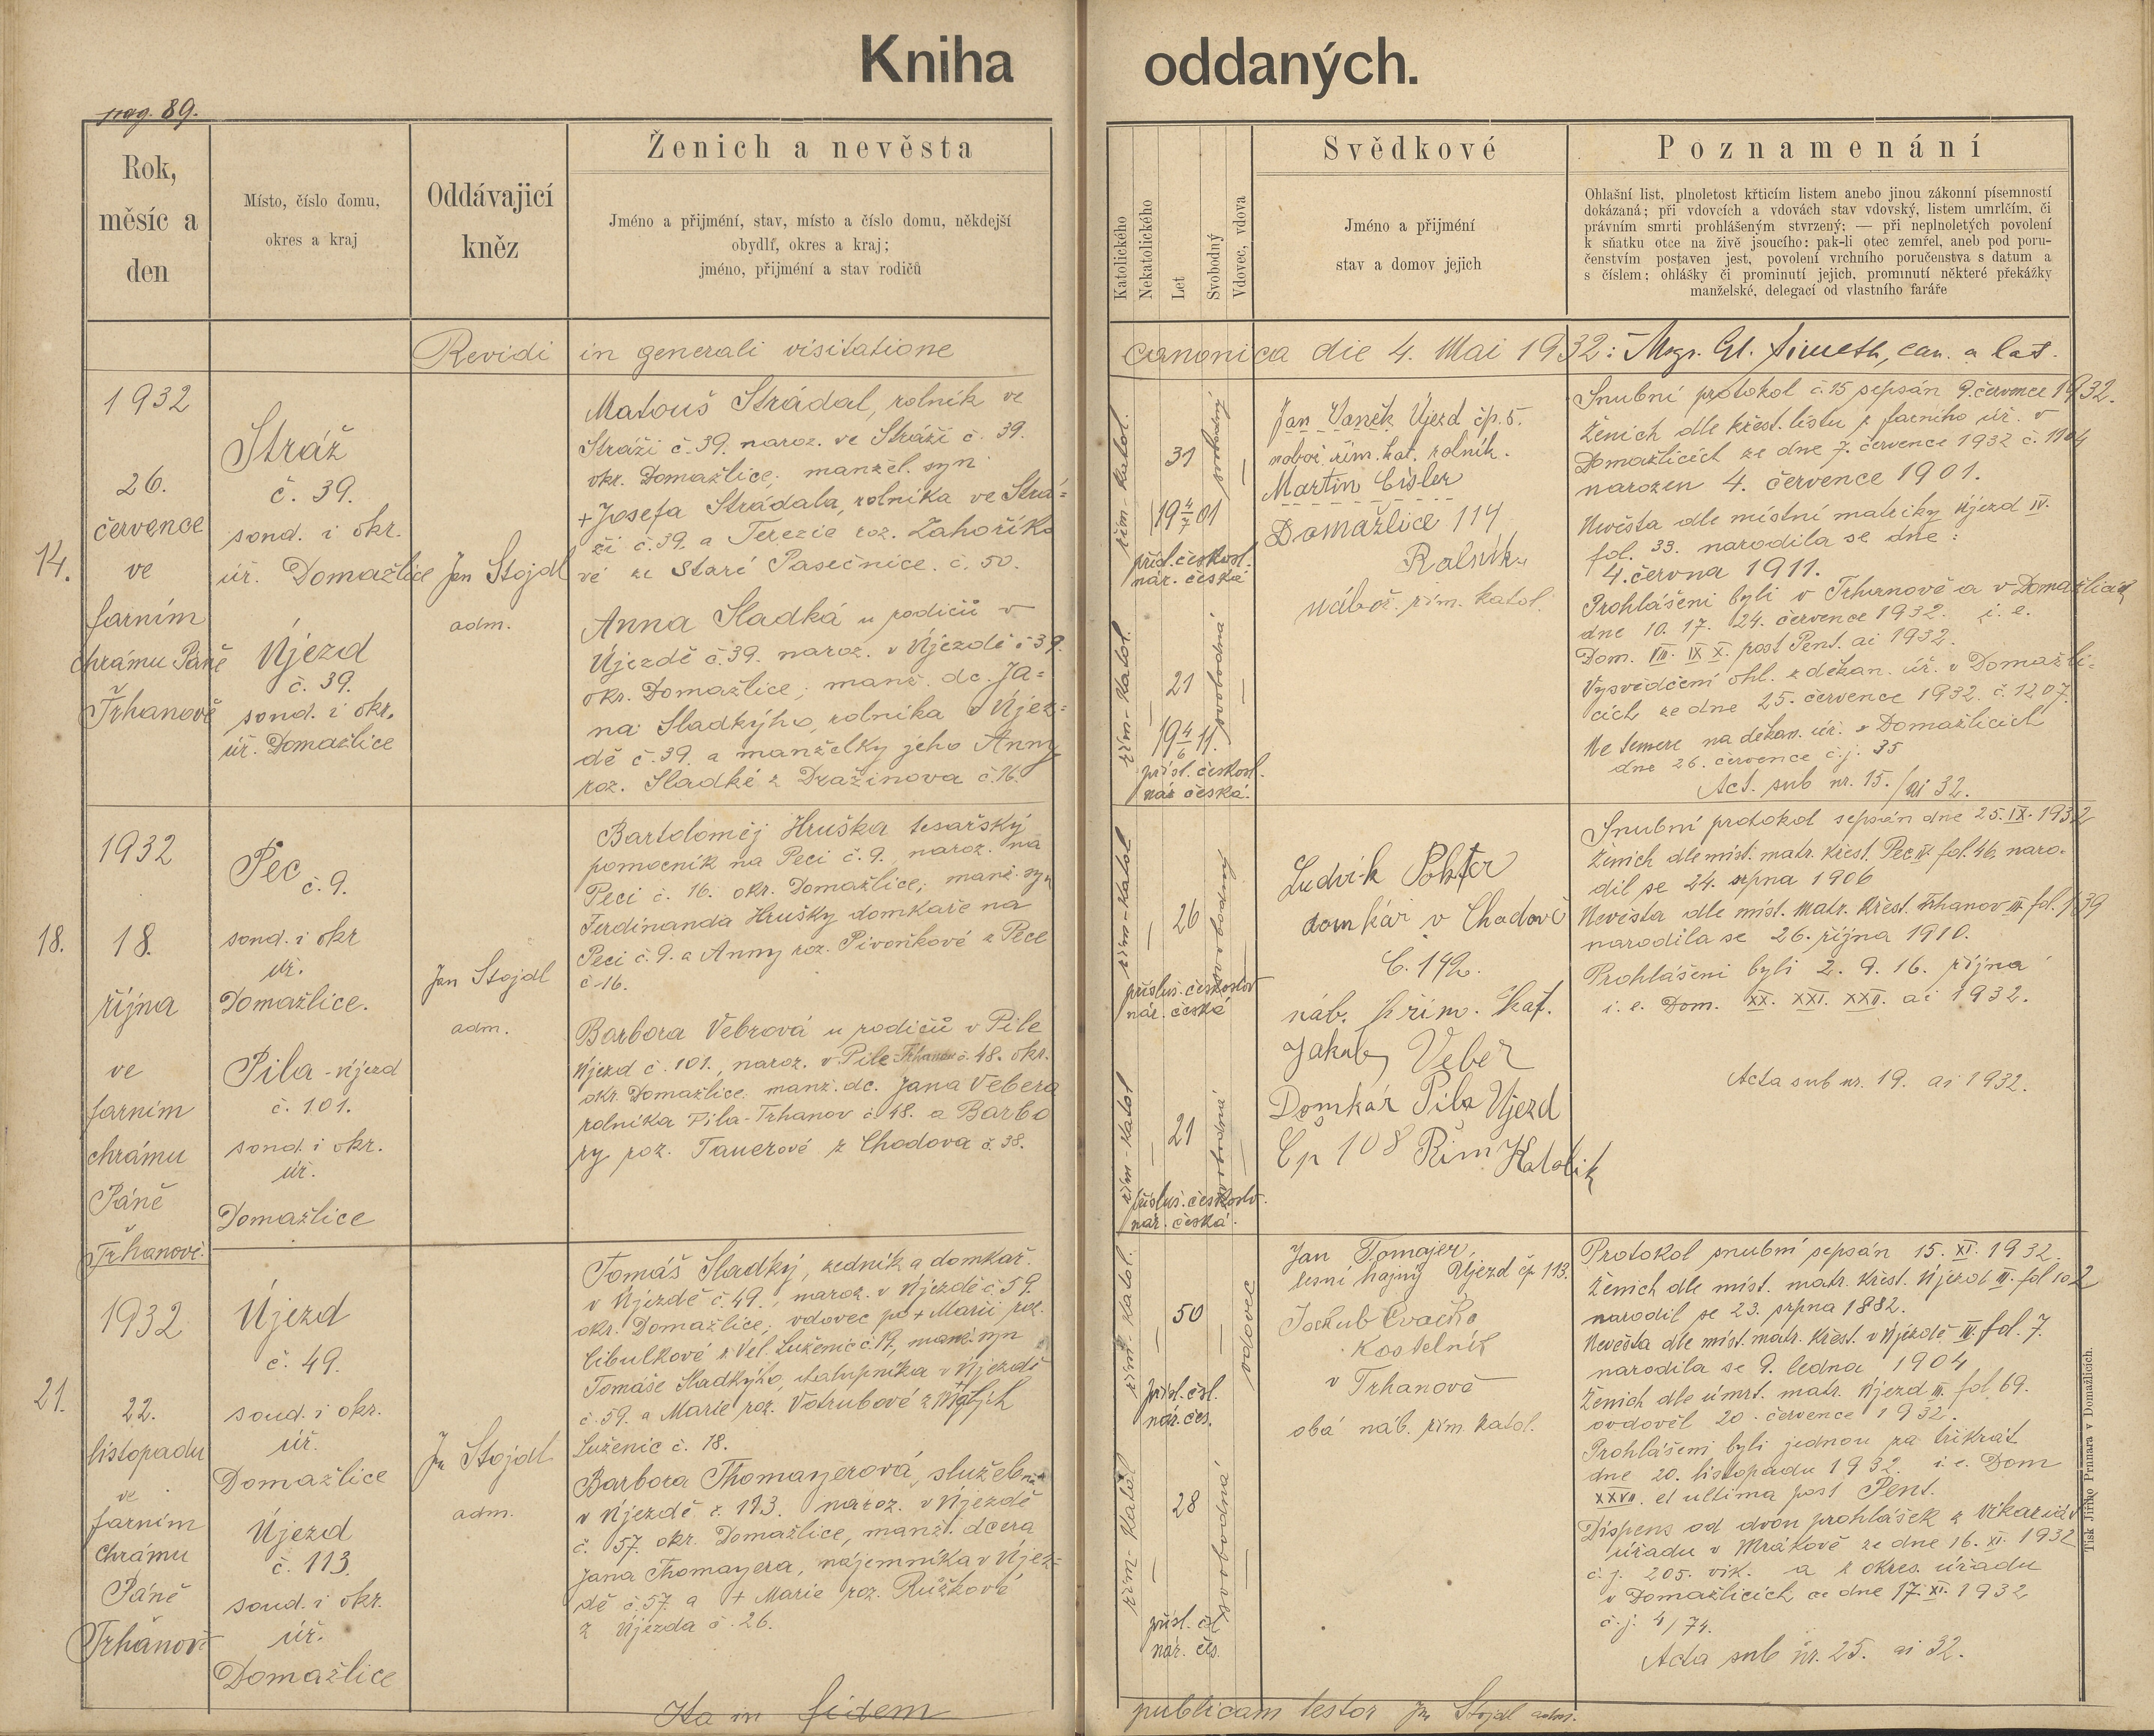 Kniha oddaných.
pag. 89.
Rok,
měsíc a
den
Místo, číslo domu,
okres a kraj
Oddávající
kněz
Ženich a nevěsta
Jméno a přijmění, stav, místo a číslo domu, někdejší
obydlí, okres a kraj;
jméno, přijmění a stav rodičů
Katolického
Nekatolického
Let
Svobodný
Vdovec, vdova
Svědkové
Jméno a přijmění
stav a domov jejich
Poznamenání
Ohlašní list, plnoletost křticím listem anebo jinou zákonní písemností
dokázaná; při vdovcích a vdovách stav vdovský, listem umrlčím, či
právním smrti prohlášeným stvrzený; — při neplnoletých povolení
k sňatku otce na živě jsoucího: pak-li otec zemřel, aneb pod poru-
čenstvím postaven jest, povolení vrchního poručenstva s datum a
s číslem; ohlášky či prominutí jejich, prominutí některé překážky
manželské, delegací od vlastního faráře
Revidi in generali visitatione canonica die 4. Mai 1932: Msgr.
14.
1932
26.
července
ve
farním
chrámu Páně
Trhanově
Stráž
č. 39.
soud. i okr.
úř. Domažlice
Újezd
č. 39.
soud. i okr.
úř. Domažlice
Jan Stojdl
adm.
Matouš Strádal, rolník ve
Stráži č. 39. naroz. ve Stráži č. 39.
okr. Domažlice; manžel. syn
+ Josefa Strádala, rolníka ve Strá=
ži č. 39. a Terezie roz. Zahoříko
vé ze Staré Pasečnice. č. 50.
Anna Sladká u rodičů v
Újezdě č. 39. naroz. v Újezdě č 39.
okr. Domažlice; manž. dc. Ja=
na Sladkýho, rolníka v Újez=
dě č. 39. a manželky jeho Anny
roz. Sladké z Dražinova č. 16.
řím. katol.
31
svobodný
19 4/7 01
přísl. českosl.
nár. česká
řím. katol.
21
svobodná
19 4/6 11.
přísl. českosl.
nár česká.
Jan Vaněk Újezd čp. 5.
nábož. řím. kat. rolník.
Martin Cisler
Domažlice 114
Rolník.
nábož. řím. katol.
Snubní protokol č. 15 sepsán 9. července 1932.
Ženich dle křest. listu z farního úř. v
Domažlicích ze dne 7. července 1932 č. 1104
narozen 4. července 1901.
Nevěsta dle místní matriky Újezd IV.
fol. 33. narodila se dne:
4. června 1911.
Prohlášeni byli v Trhanově a v Domažlicích
dne 10. 17. 24. července 1932. i. e.
Dom. VIII. IX X. post Pent. ai 1932.
Vysvědčení ohl. z děkan. úř. v Domažli-
cích ze dne 25. července 1932. č. 1207.
na děkan. úř. v Domažlicích
dne 26. července č.j. 35
Act. sub nr. 15. / ai 32.
18.
1932
18.
října
ve
farním
chrámu
Páně
Trhanově.
Pec č. 9.
soud. i okr
úř.
Domažlice.
Pila - Újezd
č. 101.
soud. i okr.
úř.
Domažlice
Jan Stojdl
adm.
Bartoloměj Hruška tesařský
pomocník na Peci č. 9., naroz. na
Peci č. 16. okr. Domažlice; manž. syn
Ferdinanda Hrušky domkaře na
Peci č. 9. a Anny roz. Pivoňkové z Pece
č. 16.
Barbora Vebrová u rodičů v Pile
Újezd č. 101., naroz. v Pile Trhanov č. 48. okr.
okr. Domažlice. manž. dc. Jana Vebera
rolníka Pila-Trhanov č. 48. a Barbo
ry roz. Tauerové z Chodova č. 38.
řím - katol
26
svobodný
přísluš. českoslov
nár. česká
řím - katol
21
svobodná
přísluš. českoslov.
nár. česká.
Ludvík
domkář v Chodově
č. 142.
náb. řím. kat.
Jakub Veber
Domkár Pila Újezd
Čp 108 Řím Katolik
Snubní protokol sepsán dne 25. IX. 1932
Ženich dle míst. matr. křest. Pec IV. fol. 46. naro-
dil se 24. srpna 1906
Nevěsta dle míst. matr. křest. Trhanov III. fol. 139
narodila se 26. října 1910.
Prohlášeni byli 2. 9. 16. října
i. e. Dom. XX. XXI. XXII. ai 1932.
Acta sub nr. 19. ai 1932.
21.
1932
22.
listopadu
ve
farním
chrámu
Páně
Trhanově
Újezd
č. 49.
soud. i okr.
úř.
Domažlice
Újezd
č. 113.
soud. i okr.
úř.
Domažlice
Jn Stojdl
adm.
Tomáš Sladký, zedník a domkař.
v Újezdě č. 49., naroz. v Újezdě č. 59.
okr. Domažlice; vdovec po + Marii roz.
Cibulkové z Vel. Luženic č. 19, manž. syn
Tomáše Sladkýho, chalupníka v Újezdě
č. 59. a Marie roz. Votrubové z
Luženic č. 18.
Barbora Thomayerová, služebná
v Újezdě č. 113. naroz. v Újezdě
č. 57. okr. Domažlice, manž. dcera
Jana Thomayera, nájemníka v Újez=
dě č. 57. a + Marie roz. Růžkové
z Újezda č. 26.
řím - katol.
50
vdovec
přísl. čsl.
nár. čes.
řím - katol
28
svobodná
přísl. čsl
nár. čes.
Jan Tomajer,
lesní hajný Újezd čp 113.
Jakub Cvačka
Kostelník
v Trhanově
obá náb. řím. katol.
Protokol snubní sepsán 15. XI. 1932.
Ženich dle míst. matr. křest. Újezd III. fol 102
narodil se 23. srpna 1882.
Nevěsta dle míst. matr. křest. v Újezdě IV. fol. 7.
narodila se 9. ledna 1904
Ženich dle úmrt. matr. Újezd III. fol. 69.
ovdověl 20. července 1932.
Prohlášeni byli jednou za třikrát
dne 20. listopadu 1932. i. e. Dom
XXVII. et ultima post Pent.
Dispens od dvou prohlášek z vikariát
úřadu v Mrákově ze dne 16. XI. 1932
č. j. 205. vik. a z okres. úřadu
v Domažlicích ze dne 17. XI. 1932
č. j. 4/74.
Acta sub nr. 25. ai 32.
Ita in fidem publicam testor Jn Stojdl adm.
Tisk Jiřího Prunara v Domažlicích.